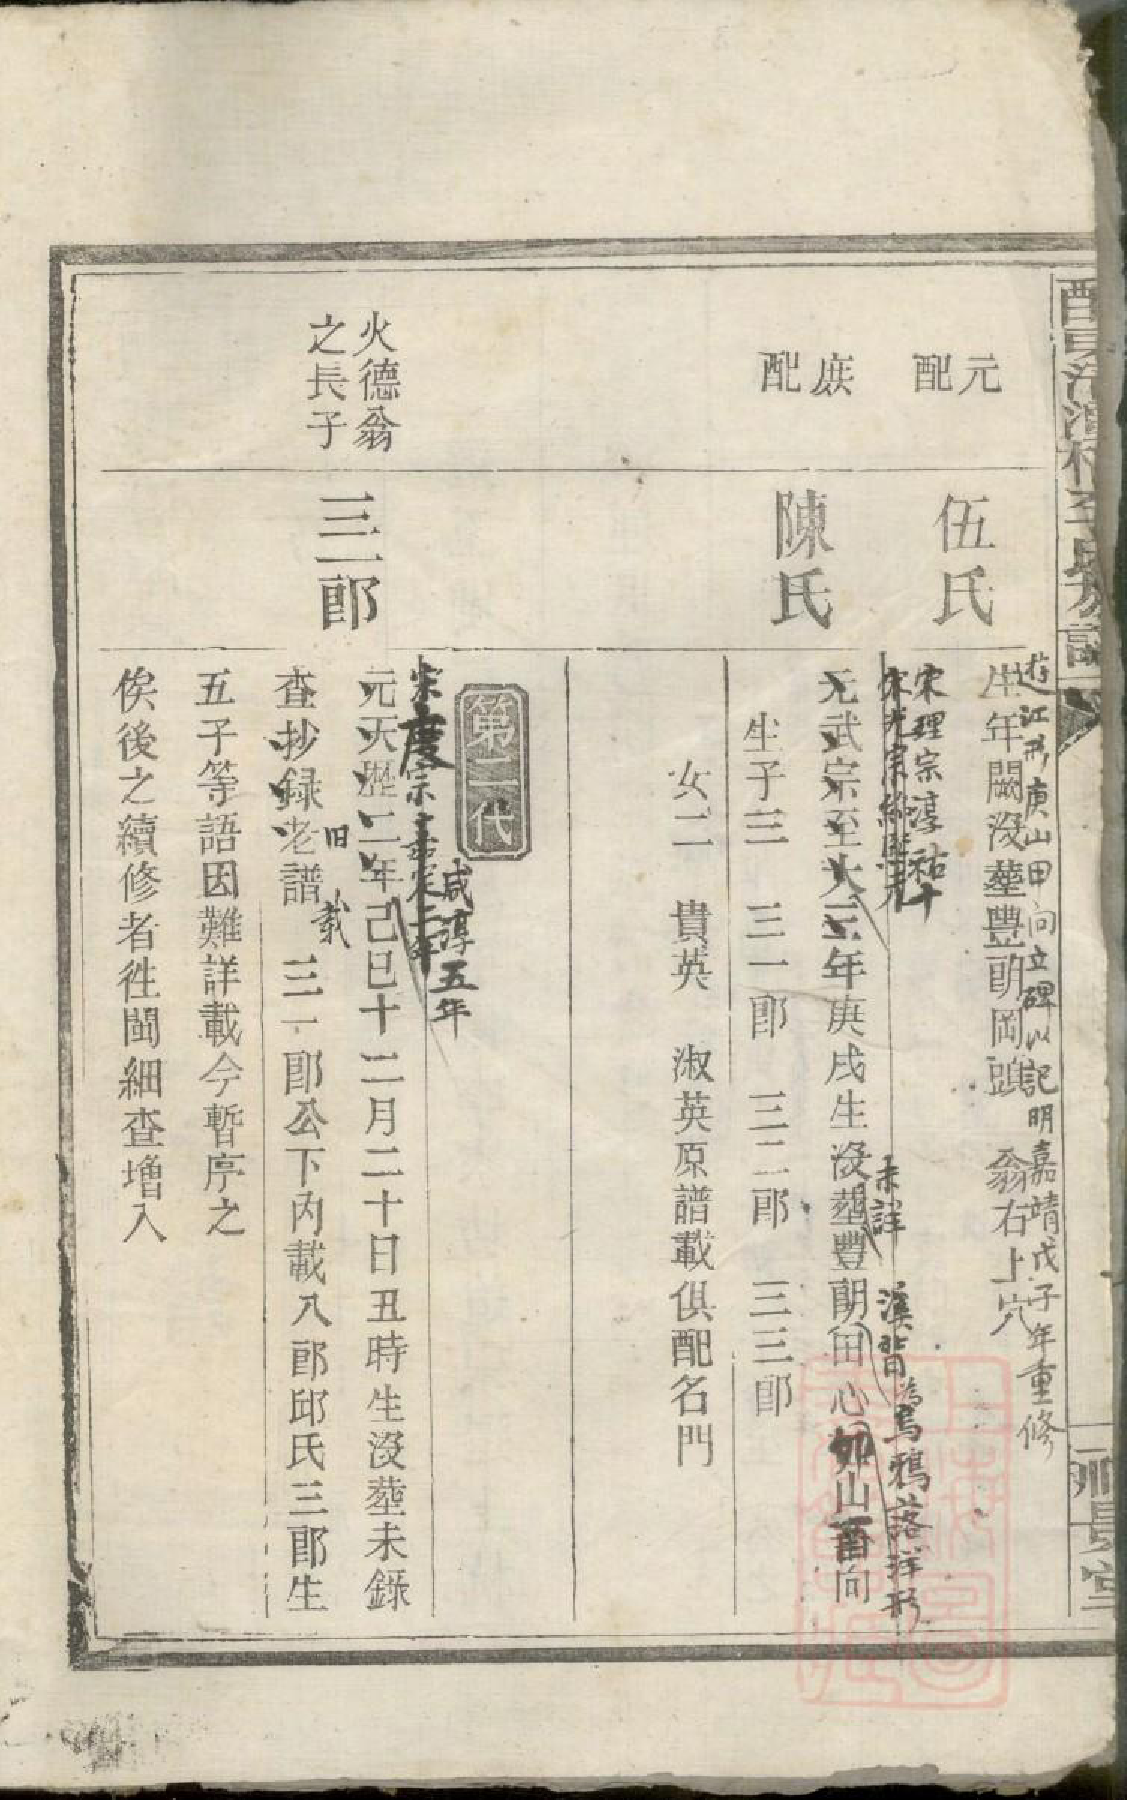 元
配
伍氏
生年闕没塟豐朗岡頭　翁右上穴
江形庚山甲向立碑以記明嘉靖戊子年重修
庶
配
陳氏
宋理宗淳祐十
宋光宗紹熙元
元武宗至大三年庚戌生没塟豐朗田心卯山酉向
未詳
溪背為烏鴉落洋形
生子三　三一郎　三二郎　三三郎
女二　貴英　淑英原譜載俱配名門
第二代
火德翁
之長子
三一郎
咸淳五年
宋度宗嘉定二年
元天歷二年己巳十二月二十日丑時生没塟未錄
查抄録老譜　三一郎公下内載八郎邱氏三郎生
旧　載
五子等語因難詳載今暫序之
俟後之續修者徃閩細查増入